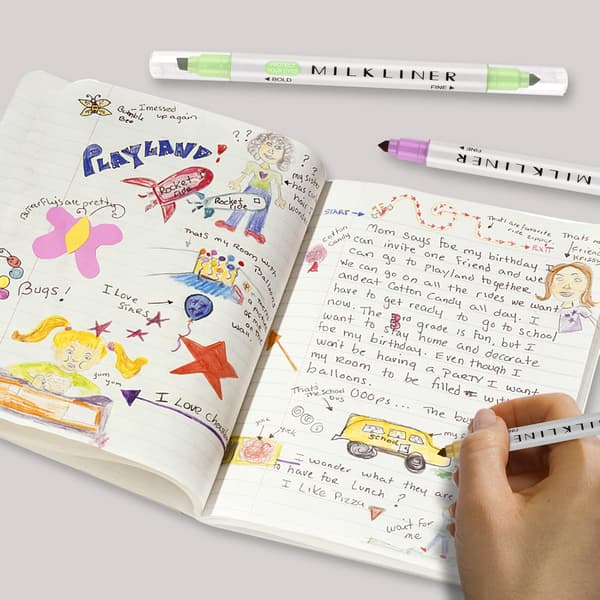 PROTECT
YOUR EYES
◄ BOLD
MILKLINER
FINE ►
FINE ►
MILKLINER
Bumble
Bee
- I messed
up again
PLAYLAND!
? ?
? ?
my sister
has cur
hair
wonder
Rocket
Fire
Rocket
ride
Butterflys are pretty
Thats my Room with
Balloons
on the
wall
Bugs!
I Love
STARS
yum
yum
I Love Choco
START
That's are favorite
ride
EXIT
Cotton
Candy
Mom says for my birthday I
can invite one friend and we
can go to playland together
we can go on all the rides we want
and eat Cotton Candy all day. I
have to get ready to go to school
now. The 3rd grade is fun, but I
want to stay home and decorate
for my birthday. Even though I
won't be having a PARTY I want
my room to be filled with
balloons.
OOOps... The bu
That's the school
bus
SCHOOL
my
yuk
I wonder what they are
to have for Lunch ?
I Like Pizza
wait for
me
MILKLINER